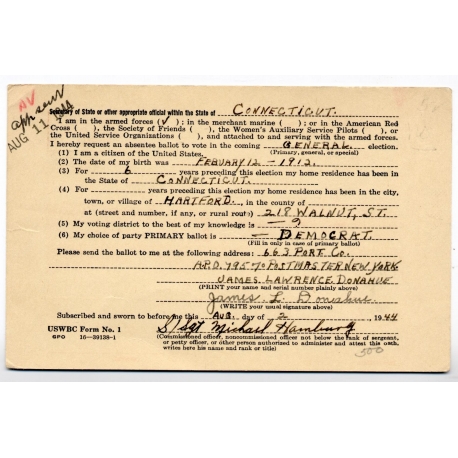 AV
app sent
AUG 11 1944
Secretary of State or other appropriate official within the State of CONNECTICUT.
I am in the armed forces (V); in the merchant marine ( ); or in the American Red
Cross ( ), the Society of Friends ( ), the Women's Auxiliary Service Pilots ( ), or
the United Service Organizations ( ), and attached to and serving with the armed forces.
I hereby request an absentee ballot to vote in the coming GENERAL election.
(Primary, general, or special)
(1) I am a citizen of the United States.
(2) The date of my birth was FEBUARY 12 - 1912.
(3) For 6 years preceding this election my home residence has been in the
State of CONNECTICUT.
(4) For years preceding this election my home residence has been in the city,
town, or village of HARTFORD., in the county of
at (street and number, if any, or rural route) 218 WALNUT, ST.
(5) My voting district to the best of my knowledge is —?
(6) My choice of party PRIMARY ballot is — DEMOCRAT.
(Fill in only in case of primary ballot)
Please send the ballot to me at the following address: 663. PORT. Co.
A.P.O. 7957 % POSTMASTER NEW YORK
JAMES LAWRENCE DONAHUE
(PRINT your name and serial number plainly above)
James L. Donahue
(WRITE your usual signature above)
Subscribed and sworn to before me this AUG. day of 2 1944
USWBC Form No. 1
GPO 16—39138-1
S/Sgt Michael Hamburg
(Commissioned officer, noncommissioned officer not below the rank of sergeant,
or petty officer, or other person authorized to administer and attest this oath,
writes here his name and rank or title)